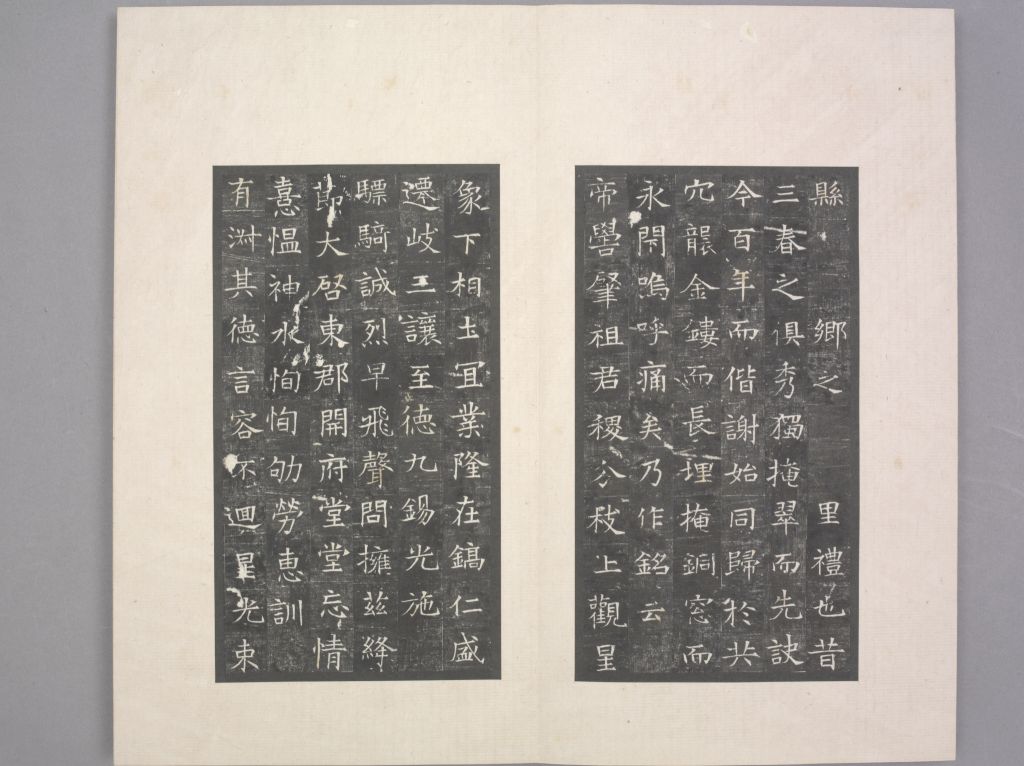 縣 鄉之 里禮也昔
三春之俱秀獨掩翠而先訣
今百年而偕謝始同歸於共
穴襲金鏤而長埋掩銅窓而
永閇嗚呼痛矣乃作銘云
帝嚳肇祖君稷上觀星
象下相土宜業隆在鎬仁盛
遷岐三讓至德九錫光施
驃騎誠烈早飛聲問擁茲絳
節大啓東郡開府堂堂忘情
憙愠神水恂恂劬勞恵訓
有淑其德言容不迴星光束